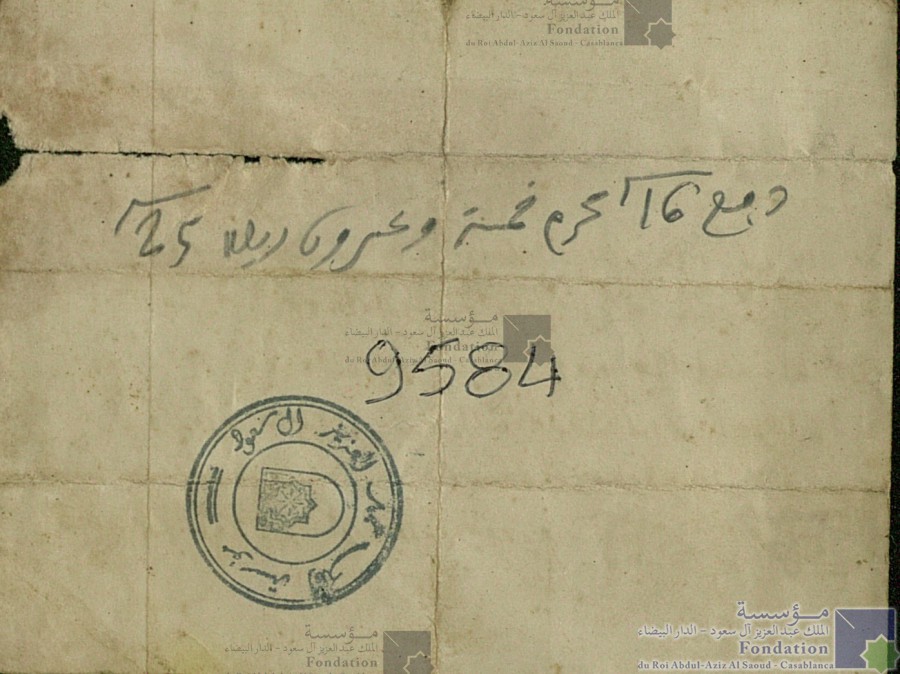 مؤسسة
الملك عبد العزيز آل سعود - الدار البيضاء
Fondation
du Roi Abdul-Aziz Al Saoud - Casablanca
دفع 16 محرم خمسة وعشرون ريالا 25
مؤسسة
الملك عبد العزيز آل سعود - الدار البيضاء
Fondation
du Roi Abdul-Aziz Al Saoud - Casablanca
9584
مؤسسة الملك عبد العزيز آل سعود
مؤسسة
الملك عبد العزيز آل سعود - الدار البيضاء
Fondation
مؤسسة
الملك عبد العزيز آل سعود - الدار البيضاء
Fondation
du Roi Abdul-Aziz Al Saoud - Casablanca